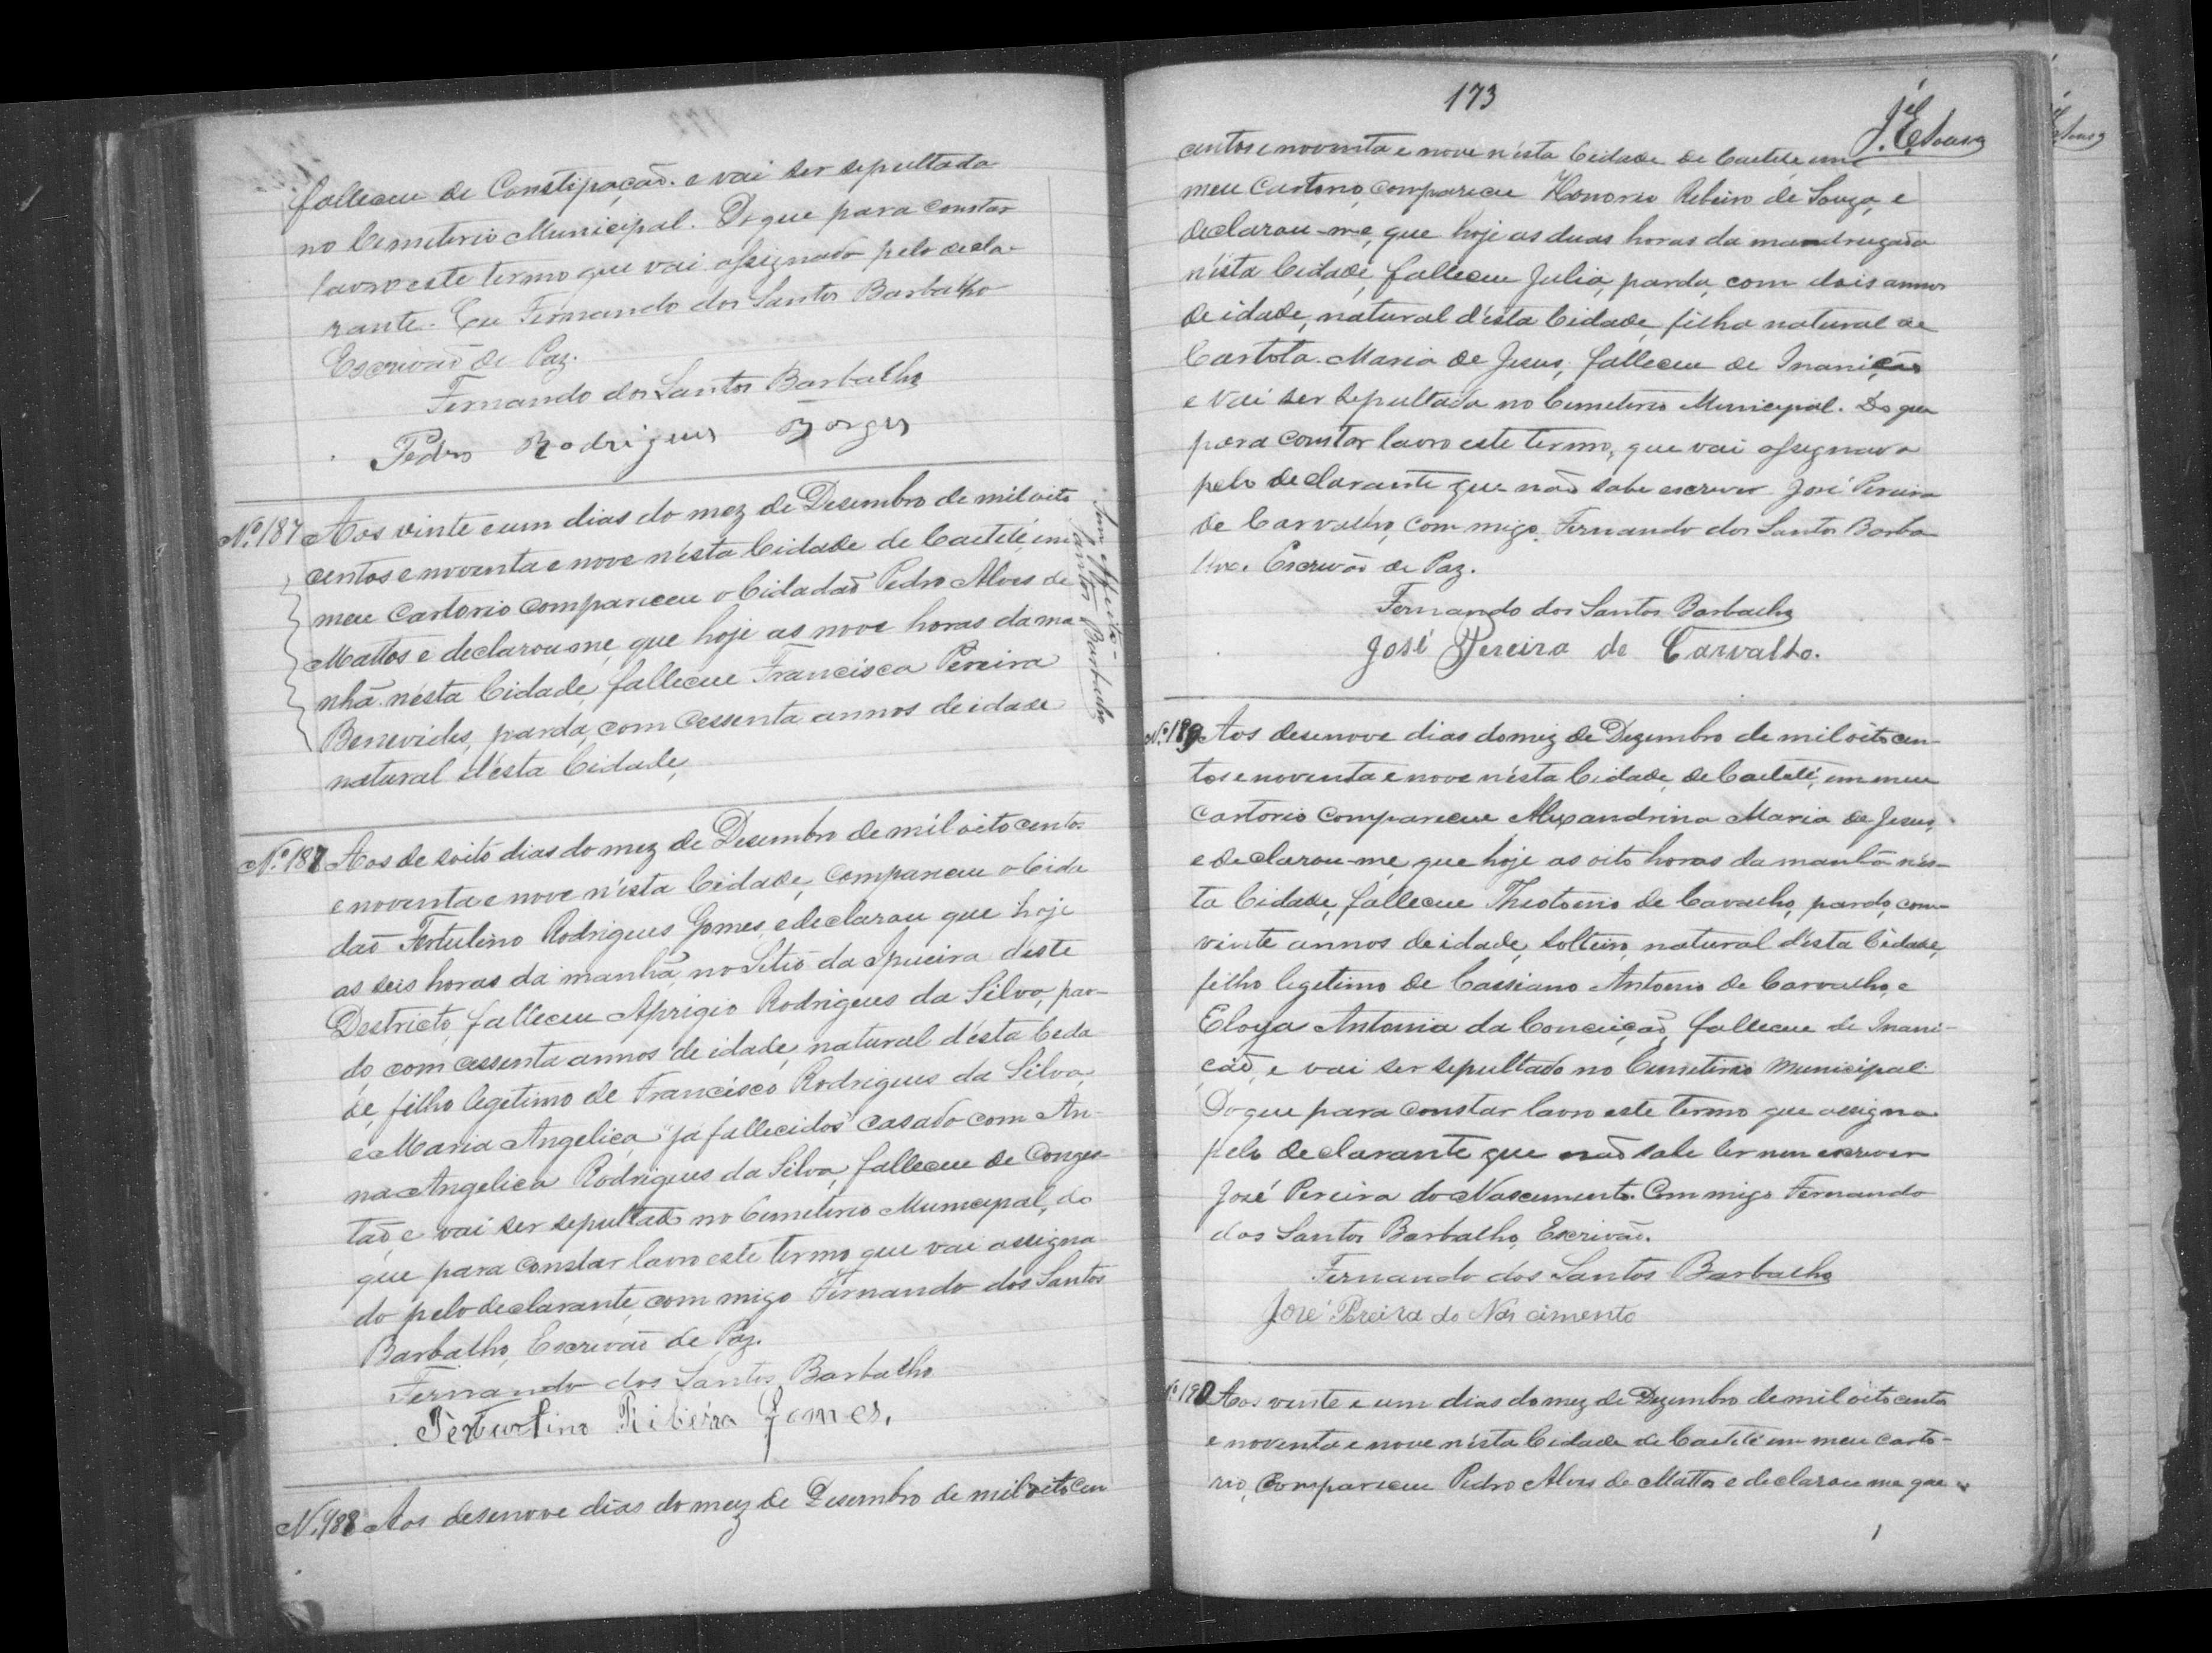 falleceu de Constipação. e vai ser sepultada
no Cemiterio Municipal. Do que para constar
lavro este termo que vai assignado pelo decla-
rante. Eu Fernando dos Santos Barbalho
Escrivão de Paz.
Fernando dos Santos Barbalho
Pedro Rodrigues Borges
Nº 187 Aos vinte e um dias do mez de Desembro de mil oito
centos e noventa e nove n'ésta Cidade de Caeteté, em
meu Cartorio compareceu o Cidadão Pedro Alves de
Mattos e declarou-me, que hoje as nove horas da ma-
nhã n'ésta Cidade, falleceu Francisca Pereira
Benevides, parda, com cessenta annos de idade
natural d'ésta Cidade,
Sem effeito -
Santos Barbalho
Nº 187 Aos desoito dias do mez de Desembro de mil oito centos
e noventa e nove n'ésta Cidade, compareceu o Cida
dão Tertulino Rodrigues Gomes, e declarou que hoje
as seis horas da manhã, no Sitio da deste
Destricto, falleceu Aprigio Rodrigues da Silva, par-
do, com cessenta annos de idade, natural d'ésta Cida
de, filho legetimo de Francisco Rodrigues da Silva,
e Maria Angelica "já fallecidos" casado com An-
na Angelica Rodrigues da Silva, falleceu de Conges-
tão, e vai ser sepultado no Cemiterio Municipal, do
que para constar lavro este termo, que vai assigna
do pelo declarante, com migo Fernando dos Santos
Barbalho, Escrivão de Paz.
Fernando dos Santos Barbalho
Tertulino Ribeiro Gomes.
N. 188 Aos desenove dias do mez de Desembro de mil oito cen
173
J. E. Sousa
centos e noventa e nove n'ésta Cidade de Caeteté em
meu Cartorio, compareceu Honorio Ribeiro de Souza, e
declarou-me, que hoje as duas horas da mandrugada
n'ésta Cidade, falleceu Julia, parda, com dois annos
de idade, natural d'ésta Cidade, filha natural de
Carlota Maria de Jesus, falleceu de Inanição
e vai ser sepultada no Cemeterio Municipal. Do que
para constar lavro este termo, que vai assignado
pelo declarante que não sabe escrever José Pereira
de Carvalho, com migo Fernando dos Santos Barba
lho. Escrivão de Paz.
Fernando dos Santos Barbalho
José Pereira de Carvalho.
Nº 189 Aos desenove dias do mez de Dezembro de mil oito cen-
tos e noventa e nove n'ésta Cidade, de Caeteté, em meu
Cartorio compareceu Alexandrina Maria de Jesus,
e declarou-me, que hoje as oito horas da manhã n'es-
ta Cidade, falleceu Theotonio de Cavalho, pardo, com
vinte annos de idade, solteiro, natural d'ésta Cidade,
filho legetimo de Cassiano Antonio de Carvalho, e
Eloya Antonia da Conceição, falleceu de Inani-
ção, e vai ser sepultado no Cemeterio Municipal.
Do que para constar lavro este termo que assigna
pelo declarante que não sabe ler nem escrever
José Pereira do Nascimento. Com migo Fernando
dos Santos Barbalho, Escrivão.
Fernando dos Santos Barbalho
José Pereira do Nascimento
Nº 190 Aos vinte e um dias do mez de Dezembro de mil oito centos
e noventa e nove n'ésta Cidade de Caeteté em meu carto-
rio, compareceu Pedro Alves de Mattos e declarou me que